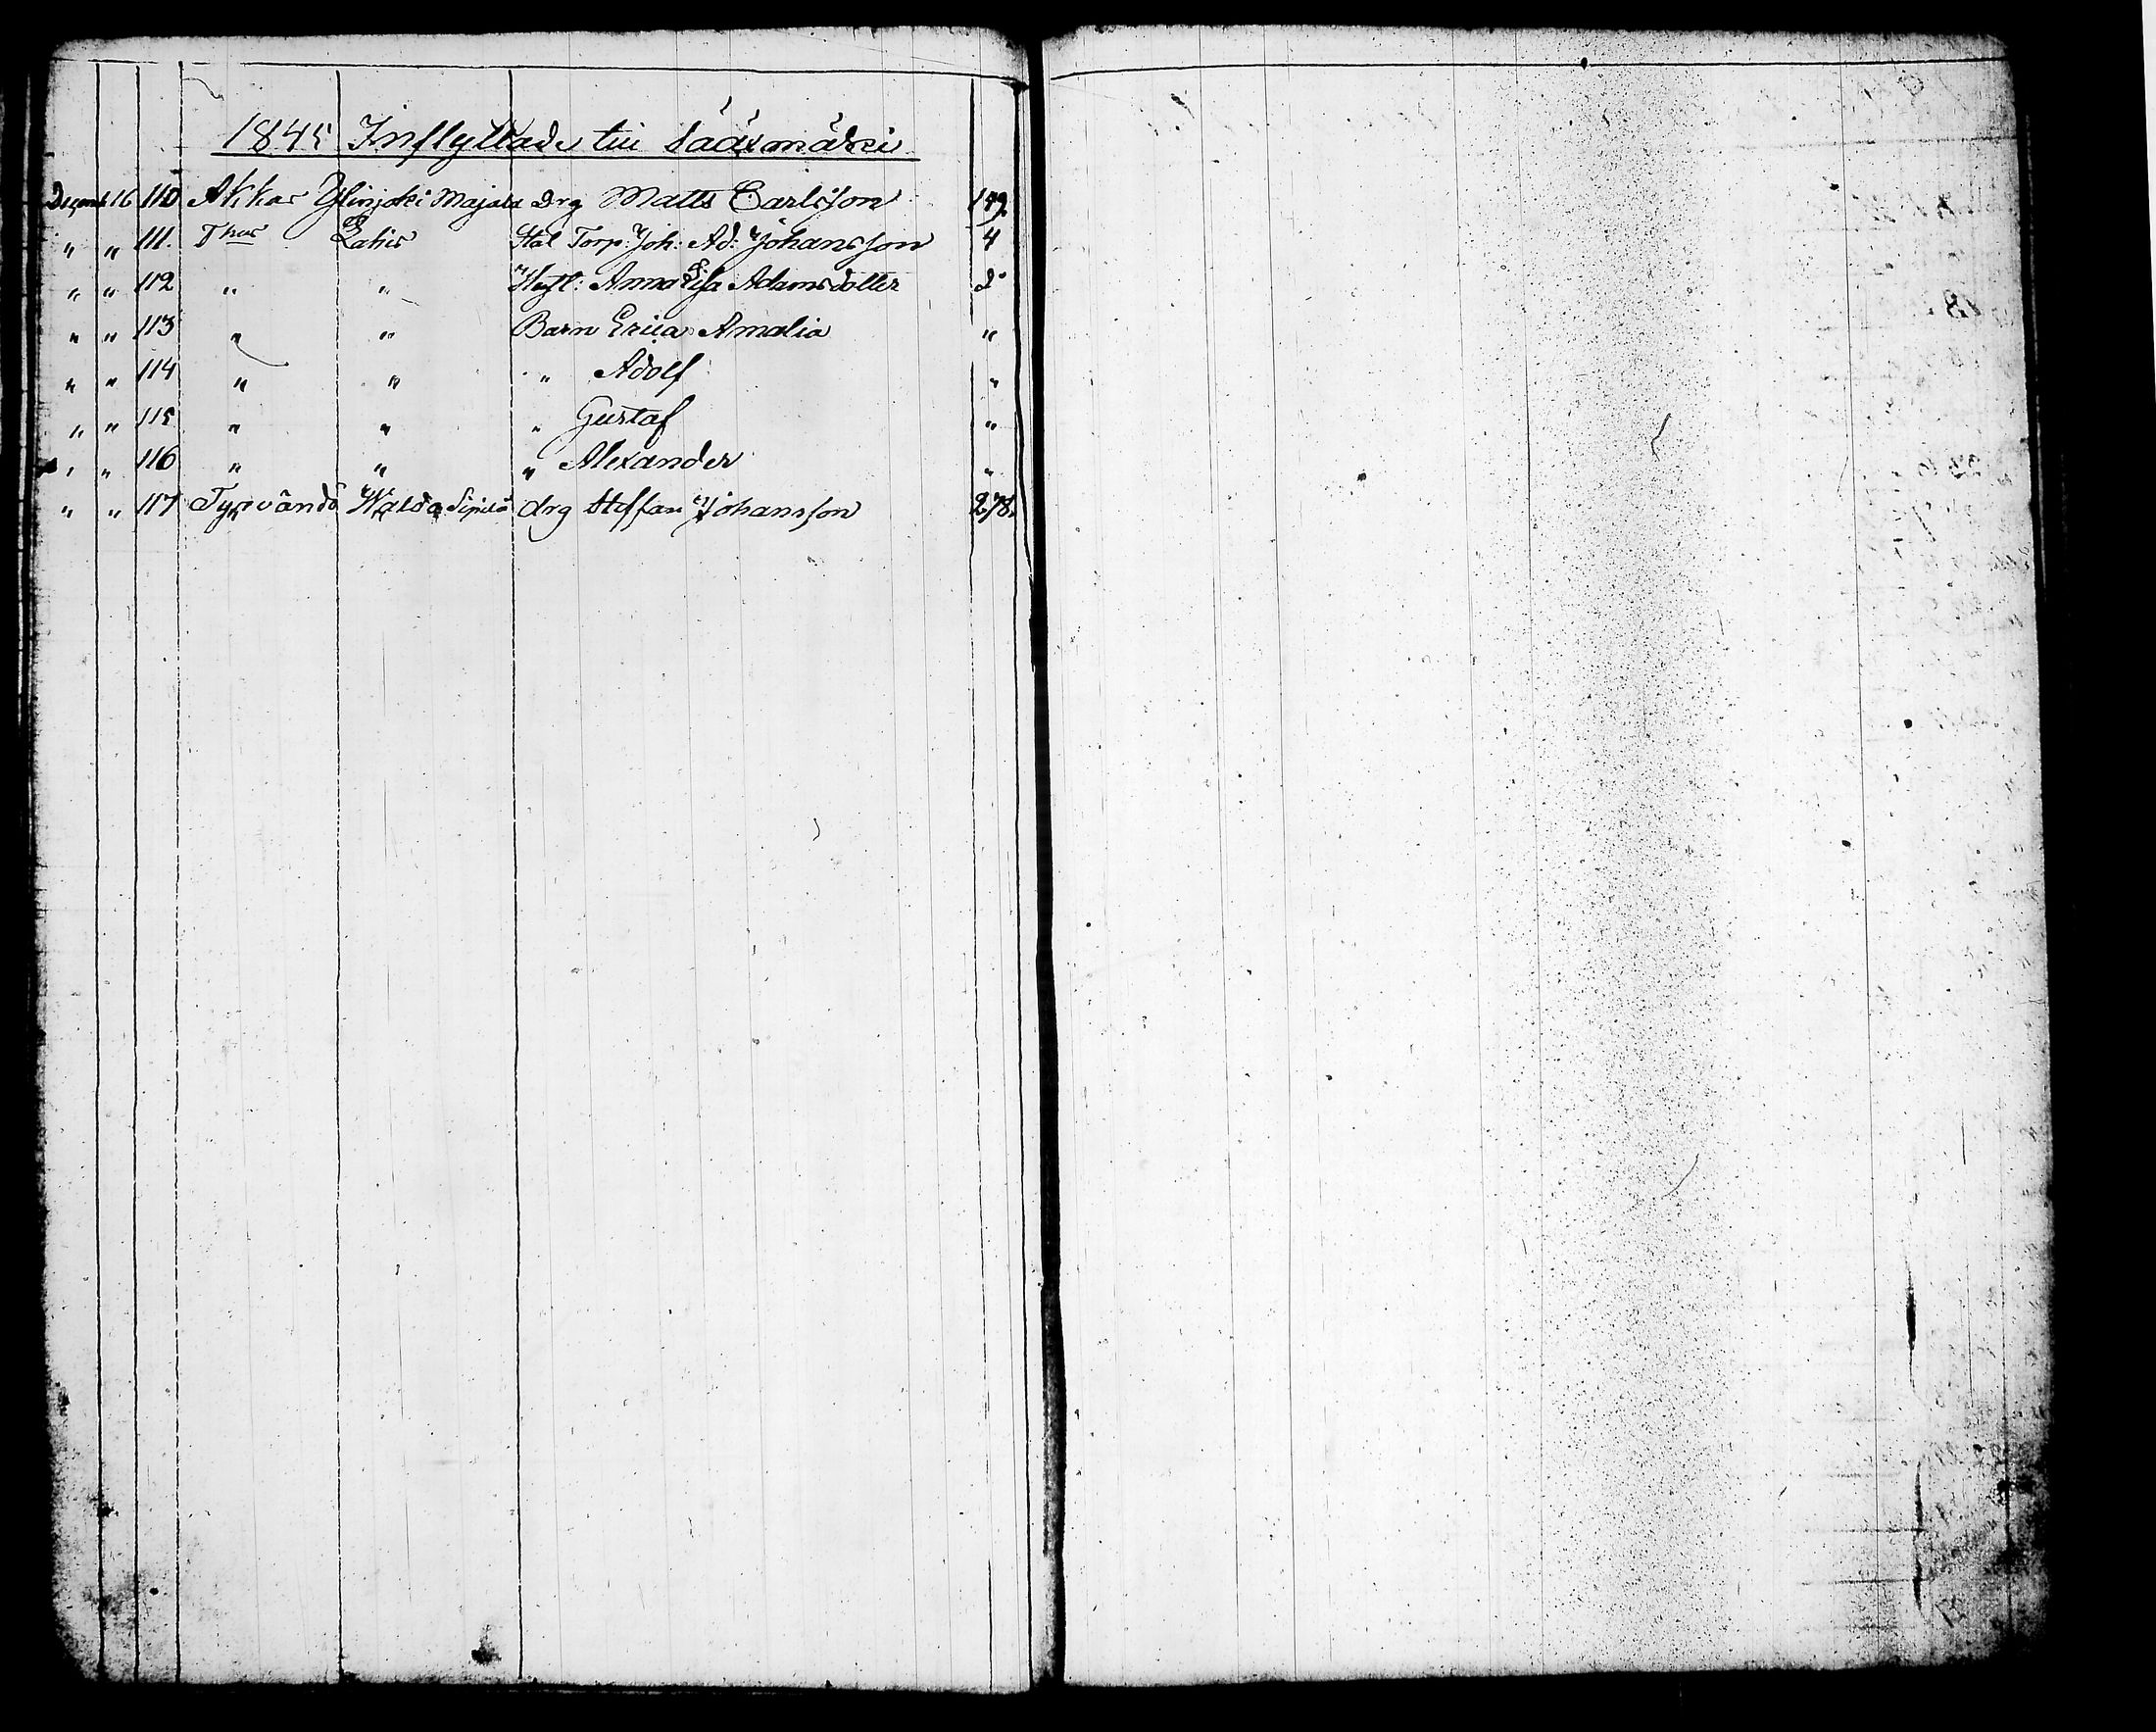 1845 Inflyttade till Sääxmäki
Decemb 16 110 Akkas Ylinjoki Majala drg Matts Carlsson 149.
" " 111. Thus Lahis Stat Torp: Joh: Ad: Johansson 4
" " 112 " " Hust: Anna Lisa Adamsdotter do
" " 113 " " Barn Erica Amalia "
" " 114 " " " Adolf "
" " 115 " " " Gustaf "
" " 116 " " " Alexander "
" " 117 Tyrvändö Walda Sipilä drg Steffan Johansson 278.